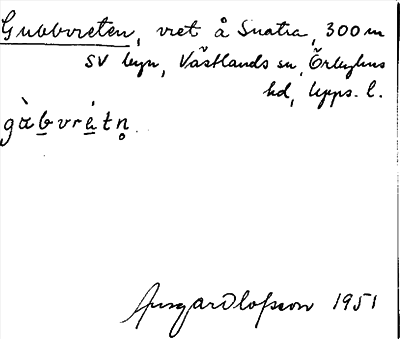 Gubbvreten, vret å Snatra, 300 m
SV byn, Västlands sn, Örbyhus
hd, Upps. l.
gàb̲vrétn̥
Ansgar Olofsson 1951